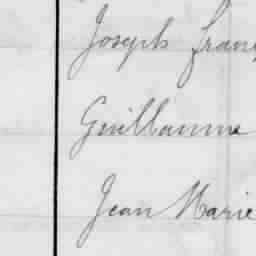 Joseph Franç
Guillaume
Jean Marie